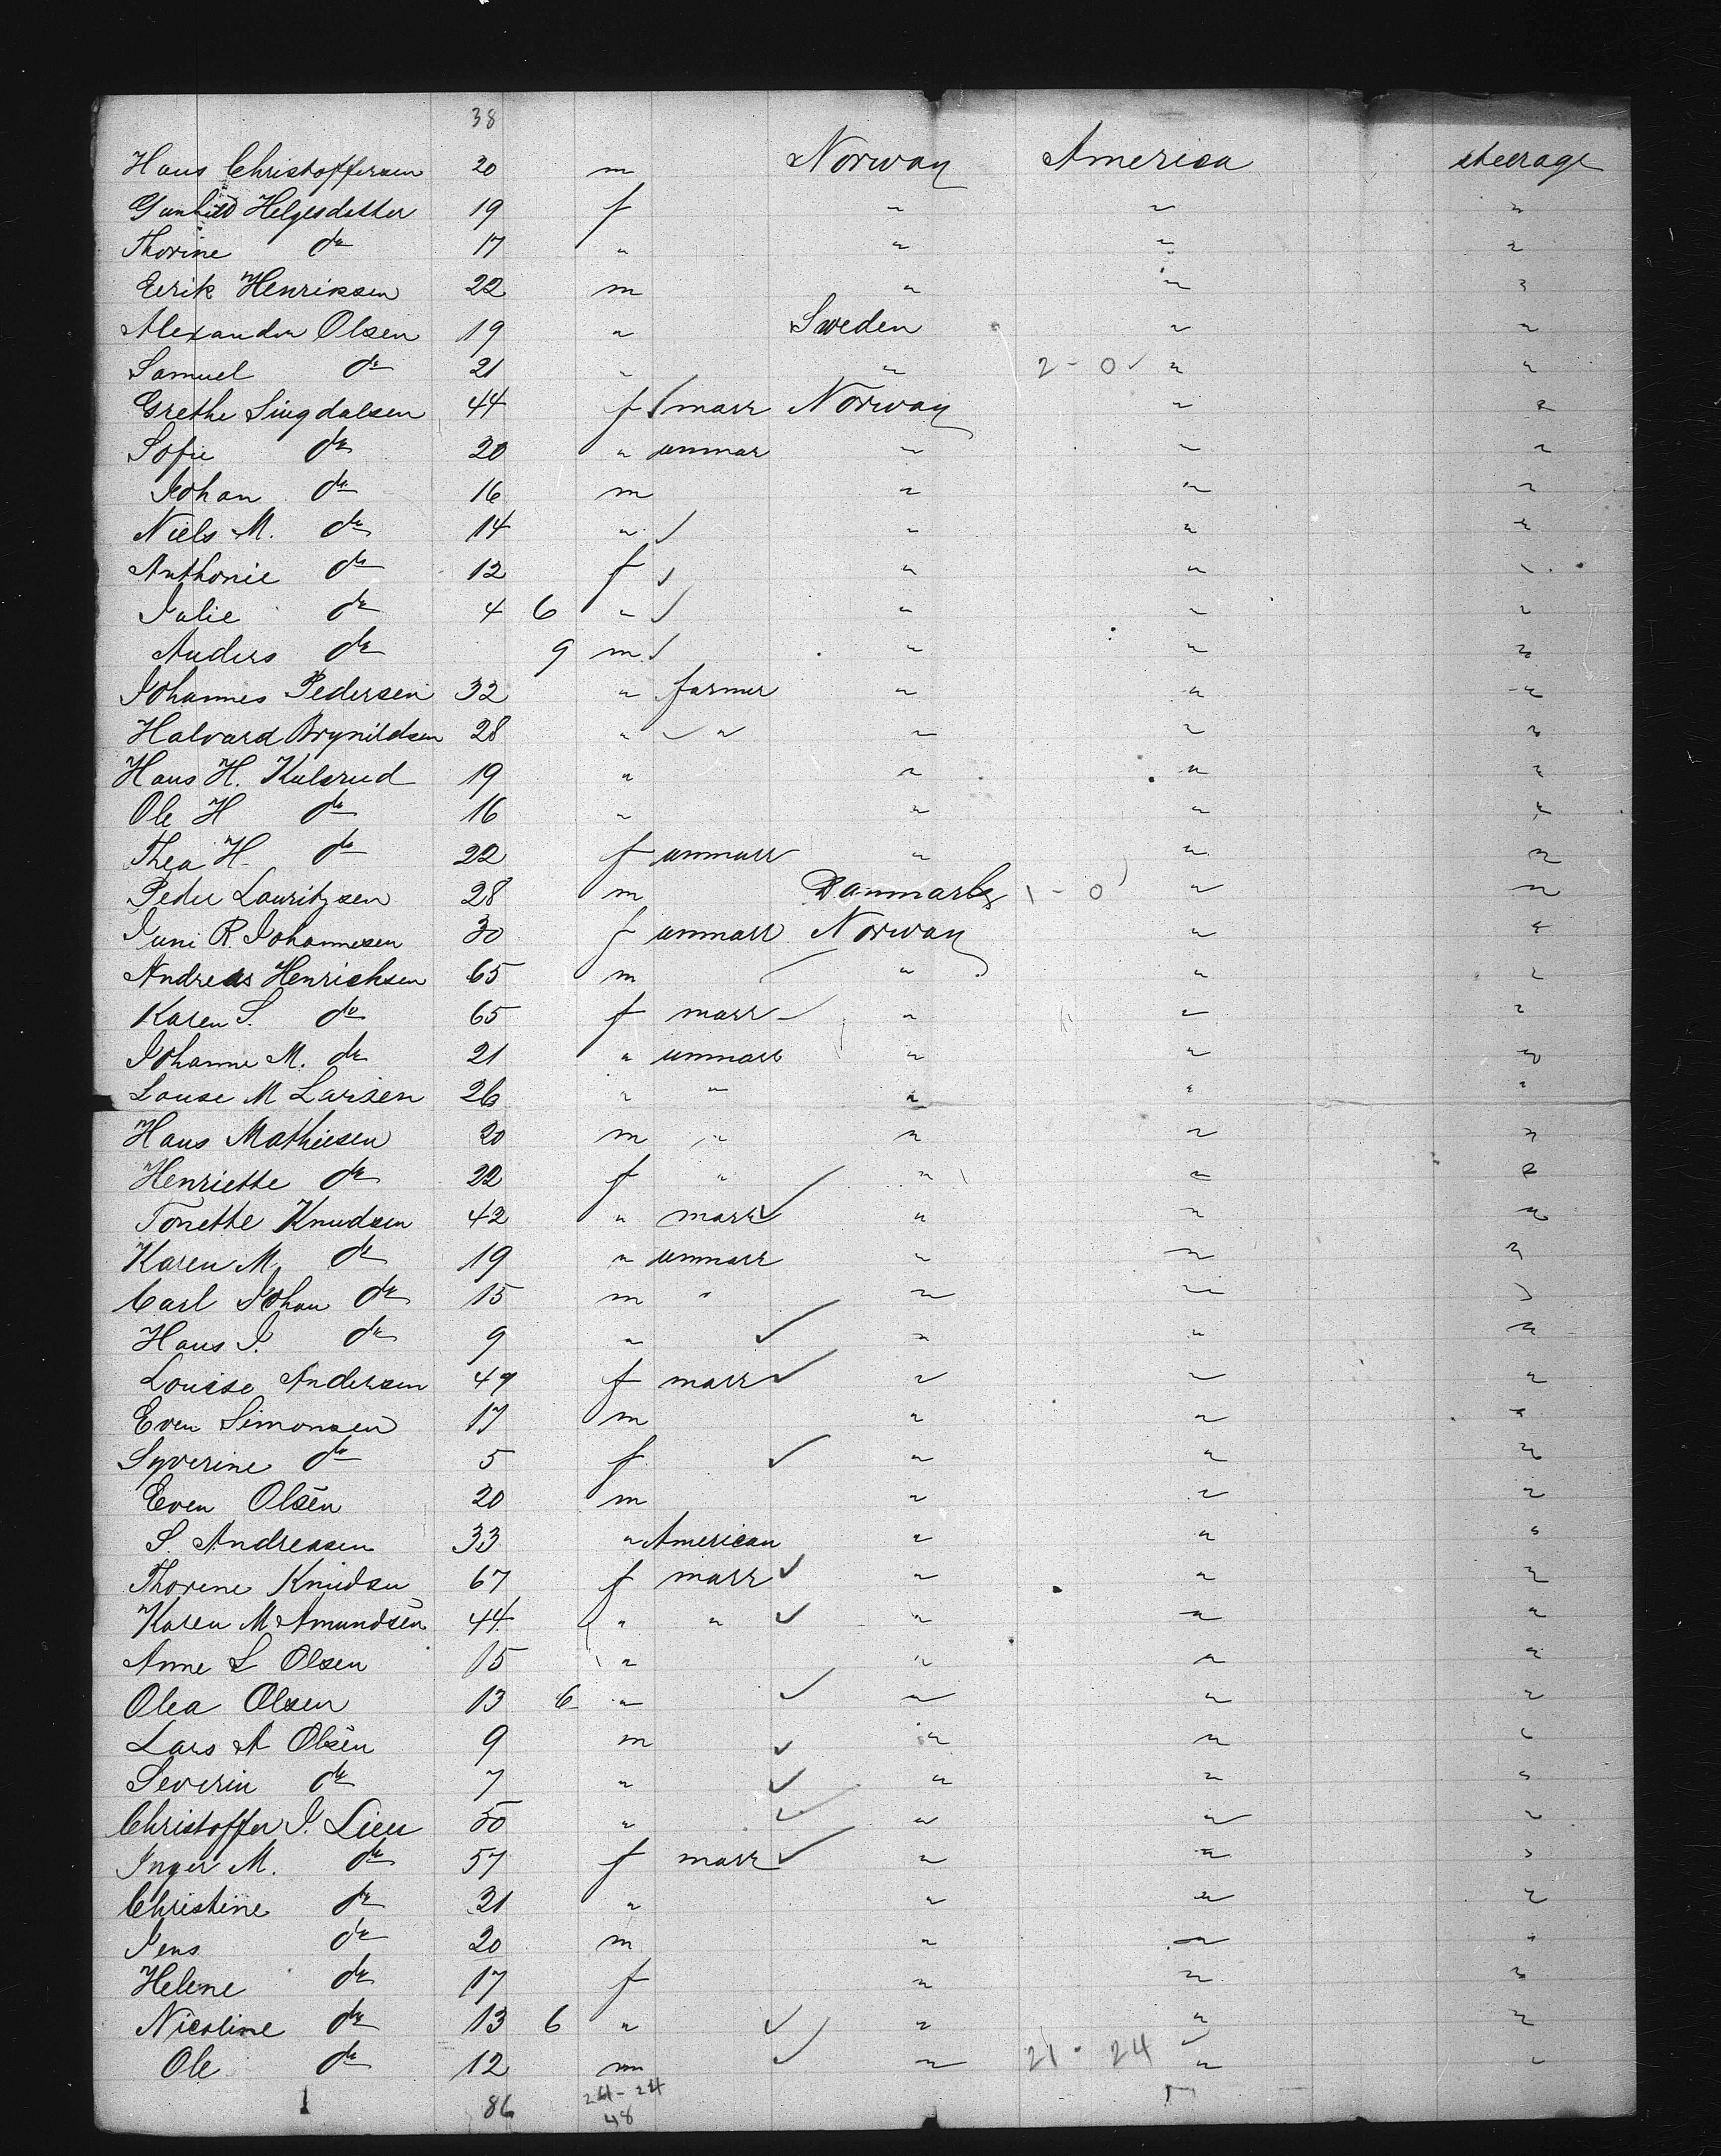 38
Hans Christoffersen 20 m Norway America steerage
Gunhild Helgesdatter 19 f " " "
Thorine do 17 " " " "
Eerik Henriksen 22 m " " "
Alexander Olsen 19 " Sweden " "
Samuel do 21 " " 2 - 0 ✓ " "
Grethe Singdalsen 44 f ✓ marr Norway " "
Sofie do 20 " unmar " " "
Johan do 16 m " " "
Niels M. do 14 " ✓ " " "
Anthonie do 12 f ✓ " " "
Julie do 4 6 " ✓ " " "
Anders do 9 m ✓ " " "
Johannes Pedersen 32 " farmer " " "
Halvard Brynildsen 28 " " " " "
Hans H. Kulsrud 19 " " " "
Ole H do 16 " " " "
Thea H. do 22 f unmarr " " "
Peder Lauritzsen 28 m Danmark 1 - 0 " "
Juni R Johannesen 30 f unmarr Norway " "
Andreas Henrichsen 65 m " " "
Karen S. do 65 f marr " " "
Johanne M. do 21 " unmarr " " "
Louse M Larsen 26 " " " " "
Hans Mathiesen 20 m " " " "
Henriette do 22 f " " " "
Tonette Knudsen 42 " marr ✓ " " "
Karen M. do 19 " unmarr " " "
Carl Johan do 15 m " " " "
Hans J. do 9 " ✓ " " "
Louise Andersen 49 f marr ✓ " " "
Even Simonsen 17 m " " "
Syverine do 5 f ✓ " " "
Even Olsen 20 m " " "
S. Andreasen 33 " American " " "
Thorene Knudsen 67 f marr ✓ " " "
Karen M Amundsen 44 " " ✓ " " "
Anne L Olsen 15 " " " "
Olea Olsen 13 6 " ✓ " " "
Lars A Olsen 9 m ✓ " " "
Severin do 7 " ✓ " " "
Christoffer J. Lien 50 " ✓ " " "
Inger M. do 57 f marr ✓ " " "
Christine do 21 " " " "
Jens do 20 m " " "
Helene do 17 f " " "
Nicoline do 13 6 " ✓ " " "
Ole do 12 m ✓ " 21 - 24 " "
86 24 - 24
48